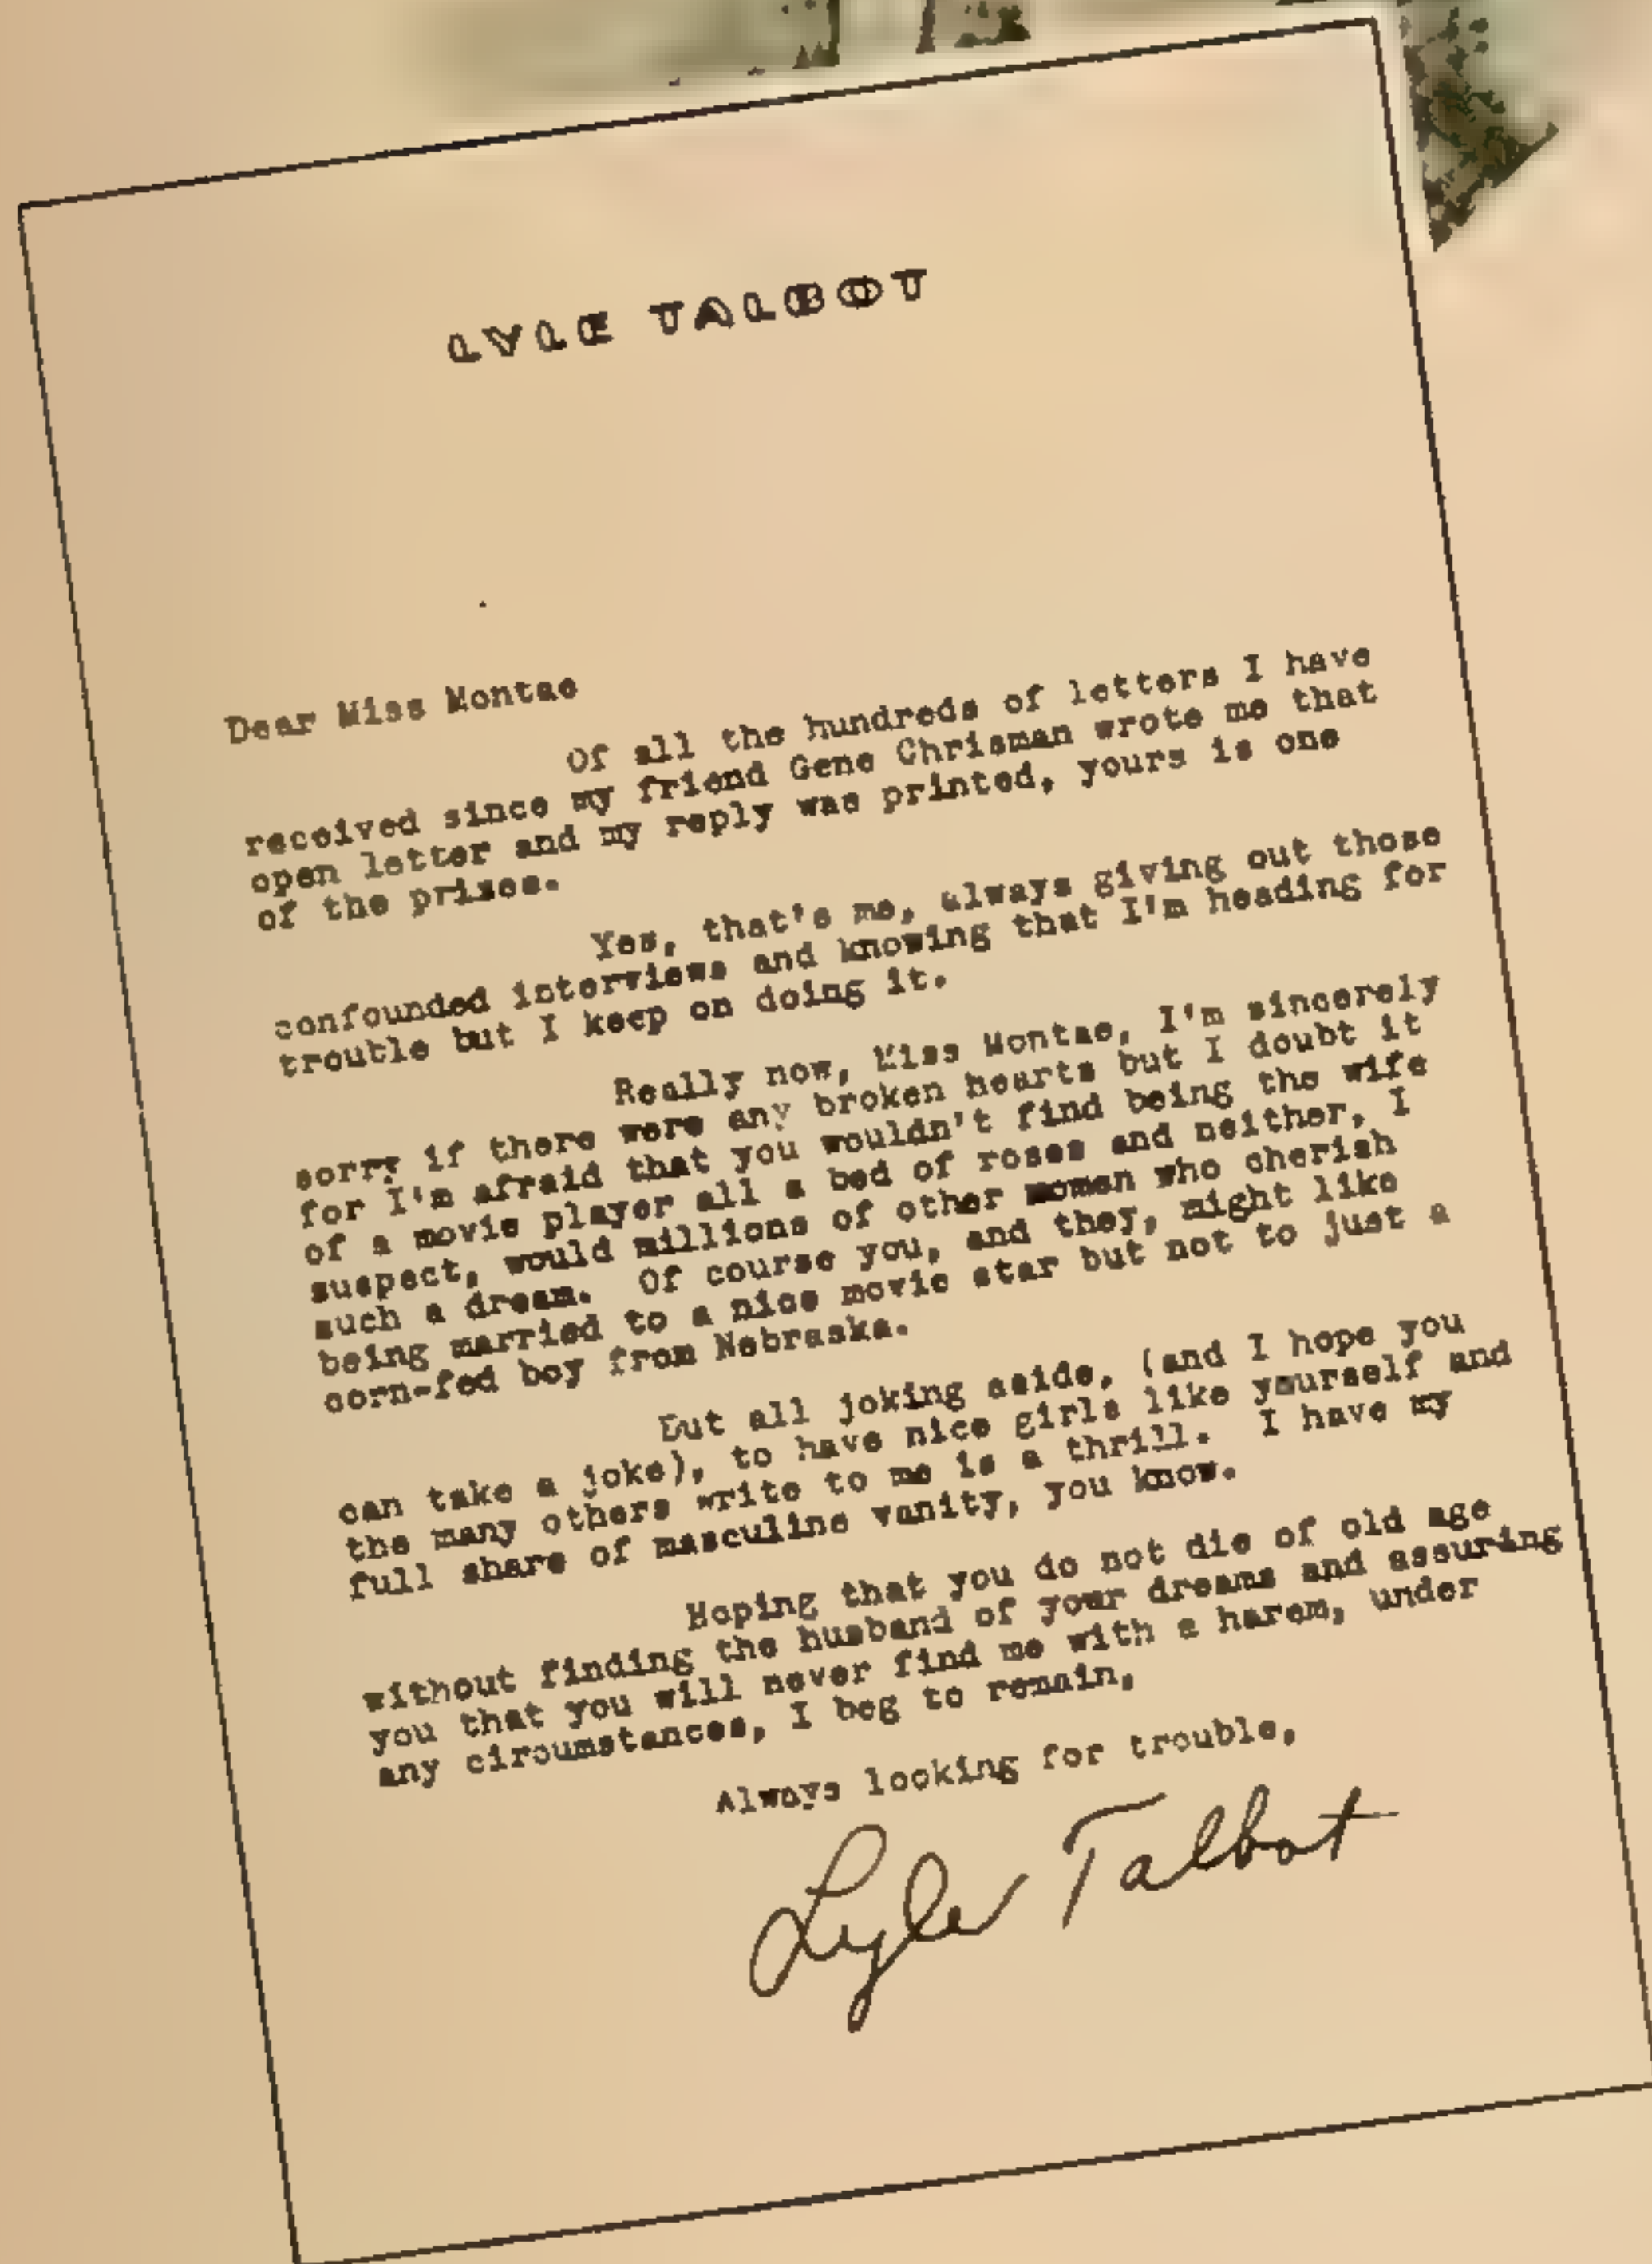 LYLE TALBOT
Dear Miss Montae
Of all the hundreds of letters I have
received since my friend Gene Chrisman wrote me that
open letter and my reply was printed, yours is one
of the prizes.
Yes, that's me, always giving out those
confounded interviews and knowing that I'm heading for
trouble but I keep on doing it.
Really now, Miss Montae, I'm sincerely
sorry if there were any broken hearts but I doubt it
for I'm afraid that you wouldn't find being the wife
of a movie player all a bed of roses and neither, I
suspect, would millions of other women who cherish
such a dream. Of course you, and they, might like
being married to a nice movie star but not to just a
corn-fed boy from Nebraska.
But all joking aside, (and I hope you
can take a joke), to have nice girls like yourself and
the many others write to me is a thrill. I have my
full share of masculine vanity, you know.
Hoping that you do not die of old age
without finding the husband of your dreams and assuring
you that you will never find me with a harem, under
any circumstances, I beg to remain,
Always looking for trouble,
Lyle Talbot